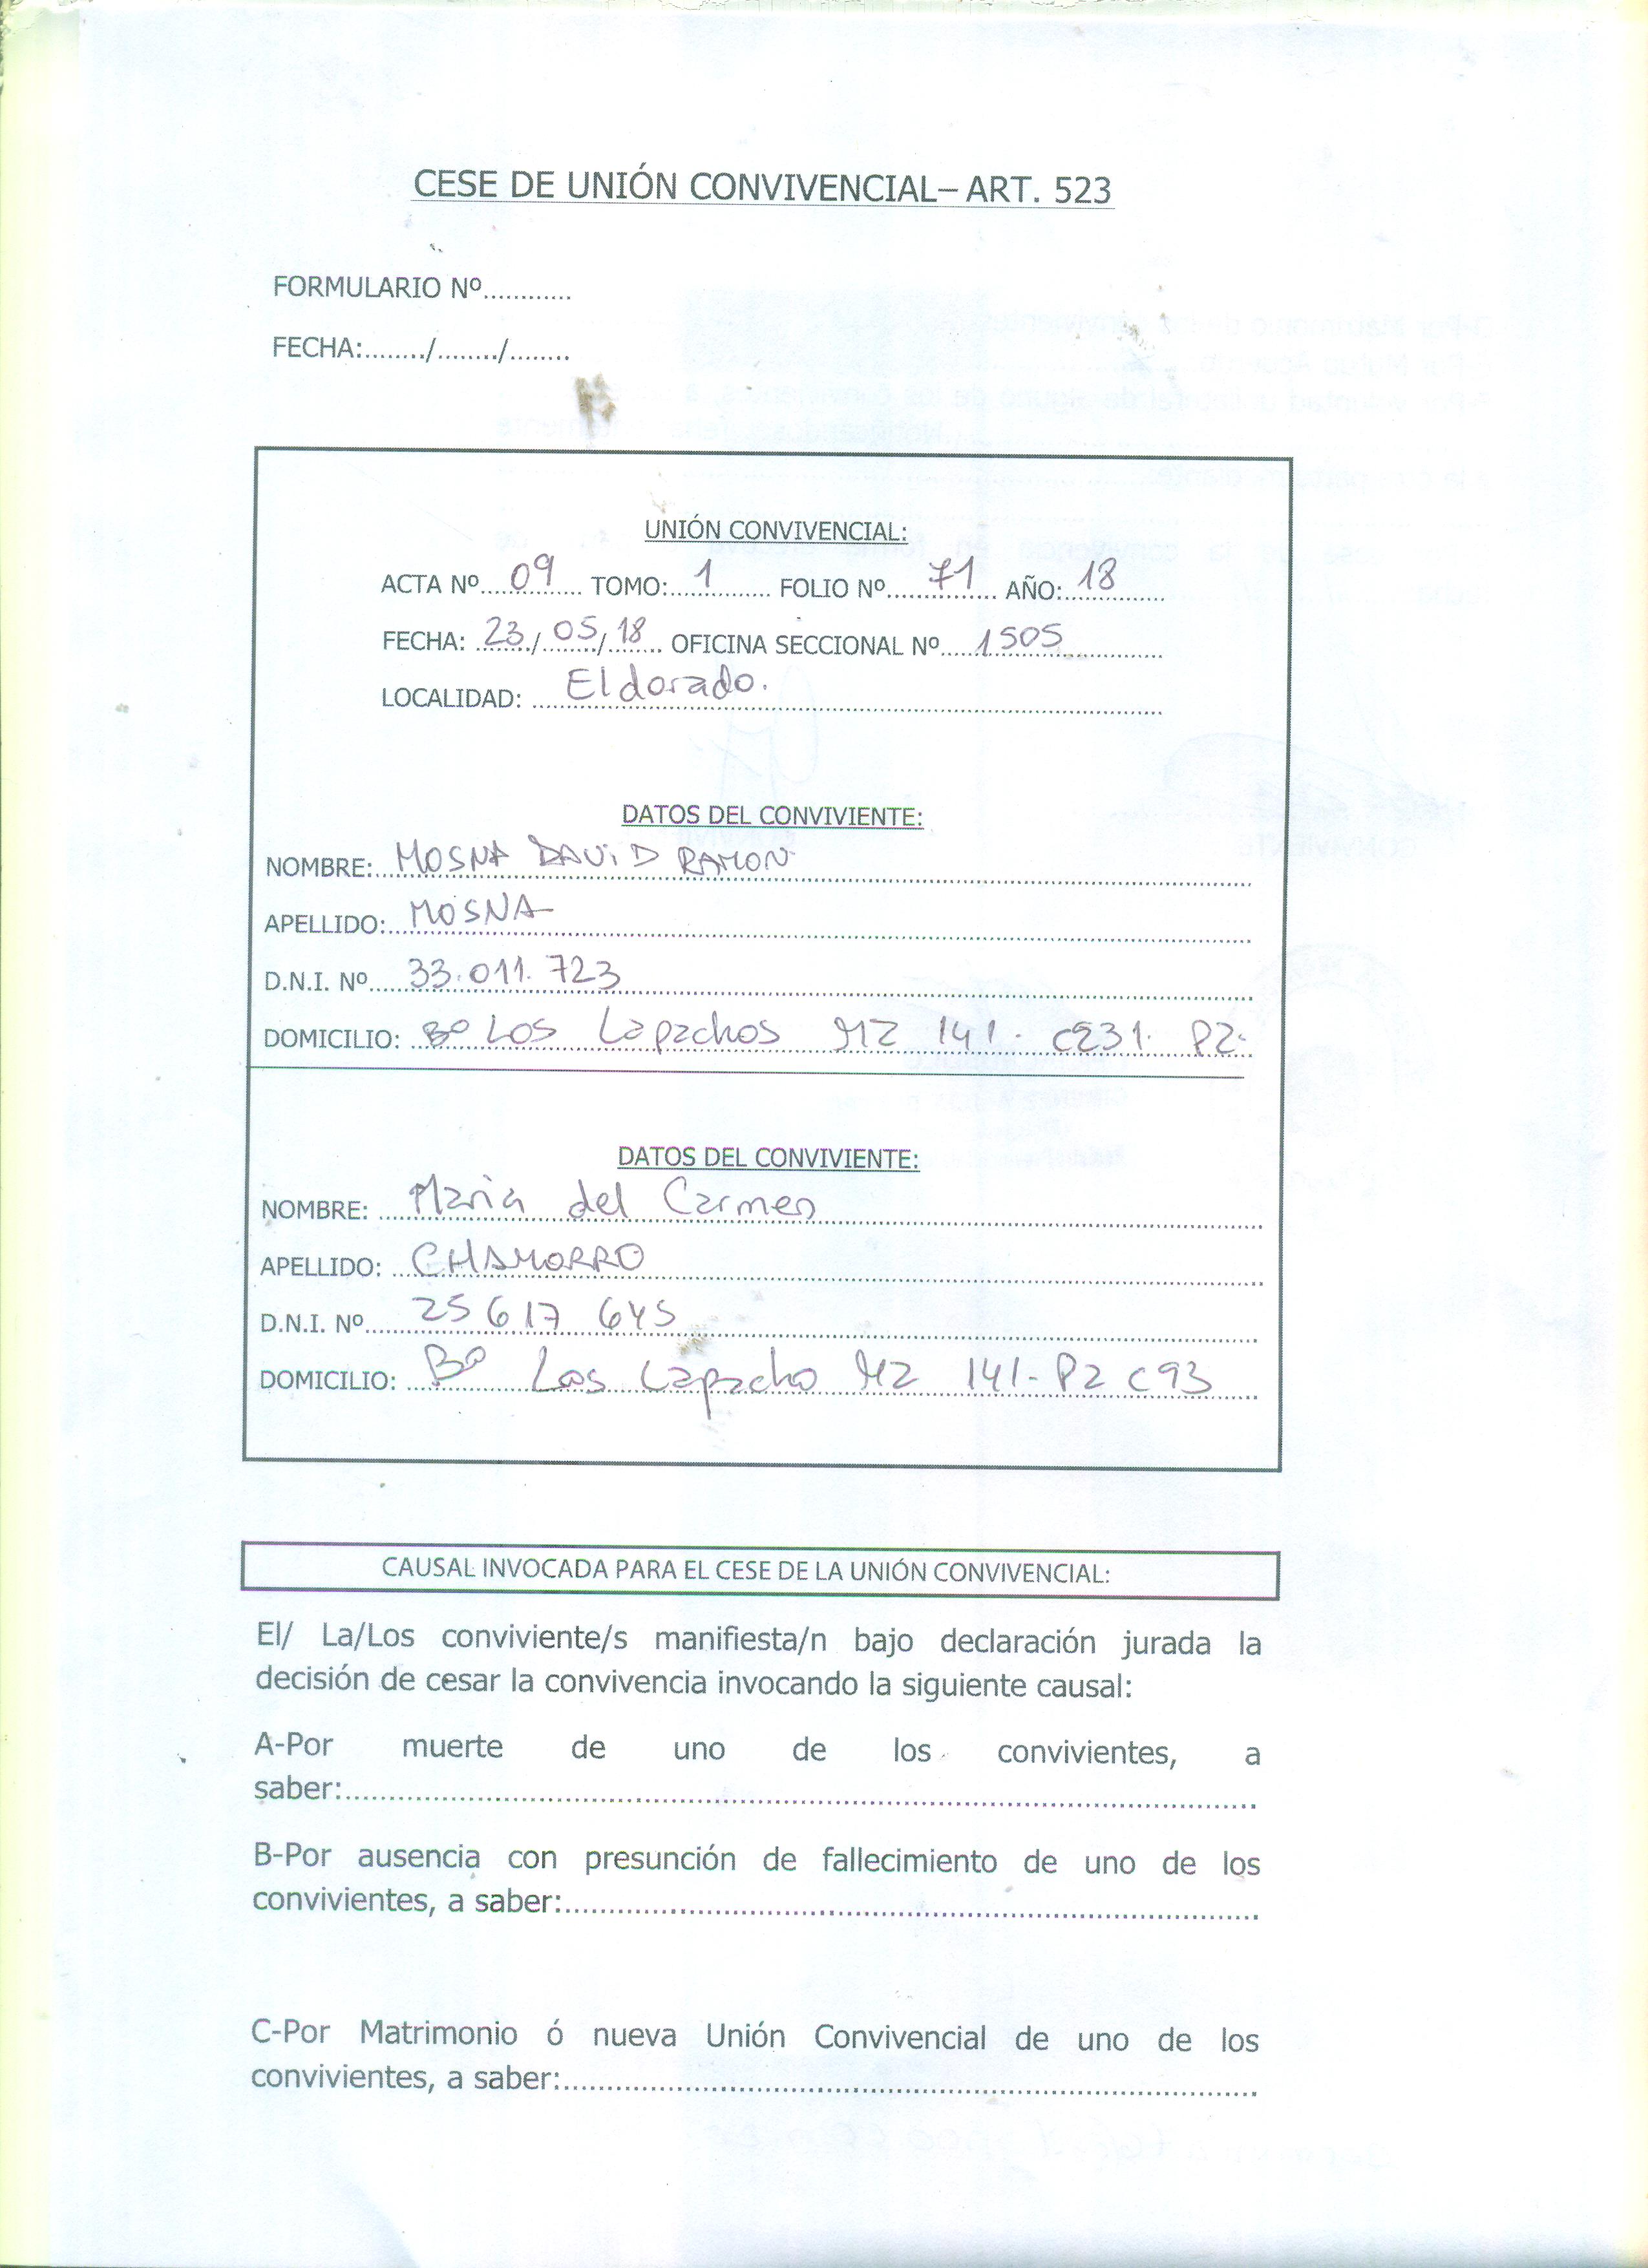 CESE DE UNIÓN CONVIVENCIAL– ART. 523
FORMULARIO Nº............
FECHA:......../......../........
UNIÓN CONVIVENCIAL:
ACTA Nº 09 TOMO: 1 FOLIO Nº 71 AÑO: 18
FECHA: 23/05/18 OFICINA SECCIONAL Nº 1505
LOCALIDAD: Eldorado.
DATOS DEL CONVIVIENTE:
NOMBRE: MOSNA DAViD RAMON
APELLIDO: MOSNA
D.N.I. Nº 33.011.723
DOMICILIO: Bº Los Lapachos MZ 141. c231. P2.
DATOS DEL CONVIVIENTE:
NOMBRE: Maria del Carmen
APELLIDO: CHAMORRO
D.N.I. Nº 25 617 645
DOMICILIO: Bº Los Lapacho MZ 141- P2 c93
CAUSAL INVOCADA PARA EL CESE DE LA UNIÓN CONVIVENCIAL:
El/ La/Los conviviente/s manifiesta/n bajo declaración jurada la
decisión de cesar la convivencia invocando la siguiente causal:
A-Por muerte de uno de los convivientes, a
saber:
B-Por ausencia con presunción de fallecimiento de uno de los
convivientes, a saber:
C-Por Matrimonio ó nueva Unión Convivencial de uno de los
convivientes, a saber: